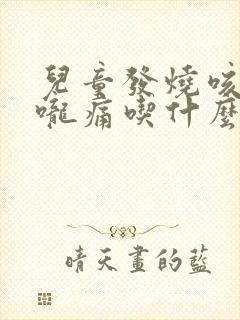 兒童發燒咳
嚨痛喫什麼
晴天畫的藍